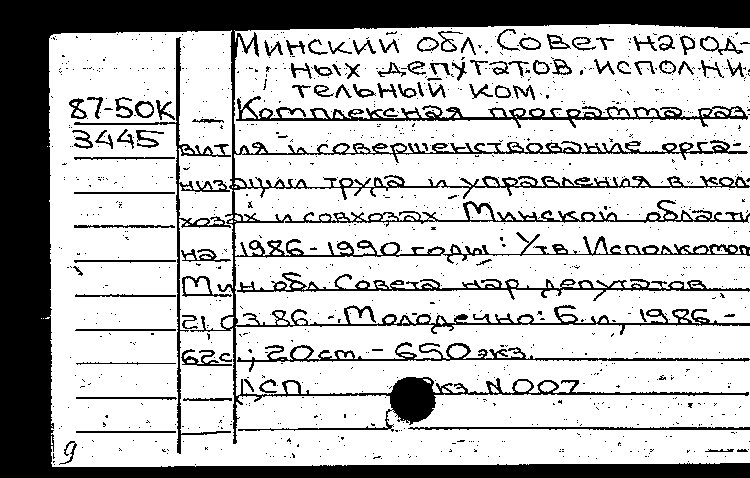 Минский обл. Совет народ-
ных депутатов. исполни
тельный ком.
87-50К — Комплексная программа раз-
3445 вития и совершенствование орга-
низации труда и управления в кол-
хозах и совхозах Минской области
на 1986-1990 годы: Утв. Исполкомом
Мин. обл. Совета нар. депутатов
21.03.86. - Молодечно: Б.и., 1986. -
62с.; 20 cm. - 650 экз.
ДСП. Экз. N007
9